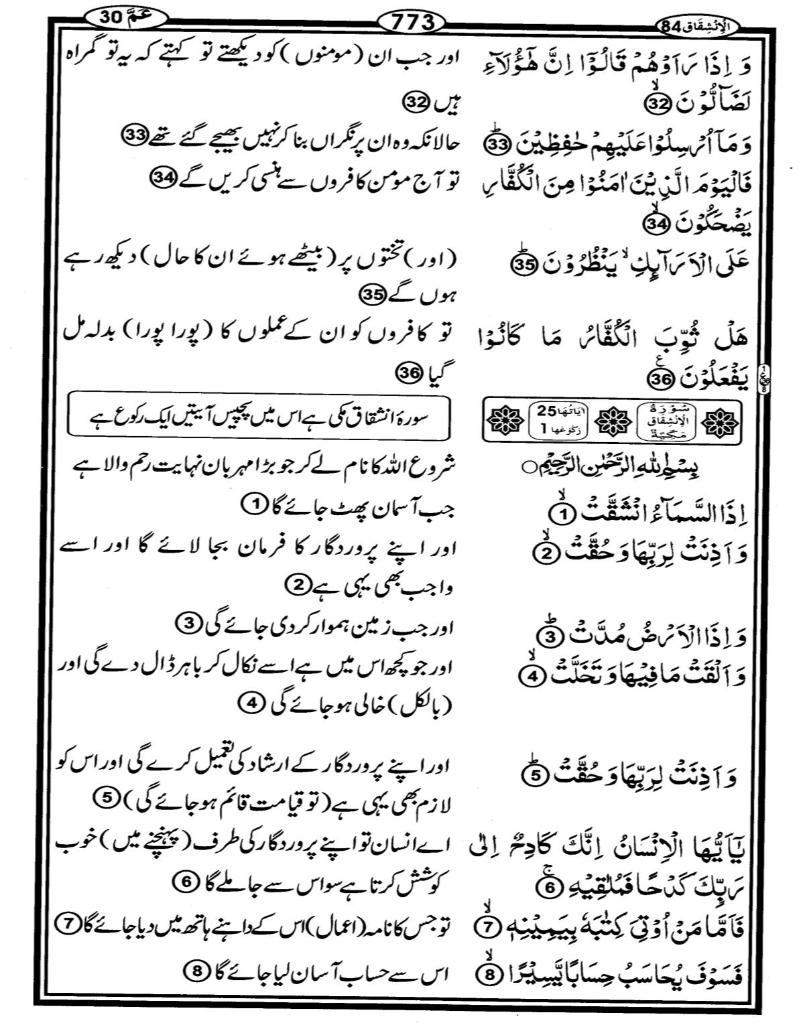 الانشقاق 84
773
عمّ 30
وَ اِذَا رَاَوْهُمْ قَالُوْۤا اِنَّ هٰۤؤُلَآءِ
لَضَآلُّوْنَ ۙ32
اور جب ان (مومنوں) کو دیکھتے تو کہتے کہ یہ تو گمراہ
ہیں 32
وَ مَاۤ اُرْسِلُوْا عَلَيْهِمْ حٰفِظِيْنَ ؕ33
حالانکہ وہ ان پر نگراں بنا کر نہیں بھیجے گئے تھے 33
فَالْيَوْمَ الَّذِيْنَ اٰمَنُوْا مِنَ الْكُفَّارِ
يَضْحَكُوْنَ ۙ34
تو آج مومن کافروں سے ہنسی کریں گے 34
عَلَى الْاَرَآىِٕكِ ۙ يَنْظُرُوْنَ ؕ35
(اور) تختوں پر (بیٹھے ہوئے ان کا حال) دیکھ رہے
ہوں گے 35
هَلْ ثُوِّبَ الْكُفَّارُ مَا كَانُوْا
يَفْعَلُوْنَ ۧ36
تو کافروں کو ان کے عملوں کا (پورا پورا) بدلہ مل
گیا 36
سُوْرَةُ الْاِنْشِقَاقِ مَكِّيَّةٌ
اٰيَاتُهَا 25
رُكُوْعُهَا 1
سورۂ انشقاق مکی ہے اس میں پچیس آیتیں ایک رکوع ہے
بِسْمِ اللّٰهِ الرَّحْمٰنِ الرَّحِيْمِ ○
شروع اللہ کا نام لے کر جو بڑا مہربان نہایت رحم والا ہے
اِذَا السَّمَآءُ انْشَقَّتْ ۙ1
جب آسمان پھٹ جائے گا 1
وَ اَذِنَتْ لِرَبِّهَا وَ حُقَّتْ ۙ2
اور اپنے پروردگار کا فرمان بجا لائے گا اور اسے
واجب بھی یہی ہے 2
وَ اِذَا الْاَرْضُ مُدَّتْ ؕ3
اور جب زمین ہموار کر دی جائے گی 3
وَ اَلْقَتْ مَا فِيْهَا وَ تَخَلَّتْ ۙ4
اور جو کچھ اس میں ہے اسے نکال کر باہر ڈال دے گی اور
(بالکل) خالی ہو جائے گی 4
وَ اَذِنَتْ لِرَبِّهَا وَ حُقَّتْ ؕ5
اور اپنے پروردگار کے ارشاد کی تعمیل کرے گی اور اس کو
لازم بھی یہی ہے (تو قیامت قائم ہو جائے گی) 5
يٰۤاَيُّهَا الْاِنْسَانُ اِنَّكَ كَادِحٌ اِلٰى
رَبِّكَ كَدْحًا فَمُلٰقِيْهِ ۚ6
اے انسان تو اپنے پروردگار کی طرف (پہنچنے میں) خوب
کوشش کرتا ہے سو اس سے جا ملے گا 6
فَاَمَّا مَنْ اُوْتِيَ كِتٰبَهٗ بِيَمِيْنِهٖ ۙ7
تو جس کا نامہ (اعمال) اس کے داہنے ہاتھ میں دیا جائے گا 7
فَسَوْفَ يُحَاسَبُ حِسَابًا يَّسِيْرًا ۙ8
اس سے حساب آسان لیا جائے گا 8